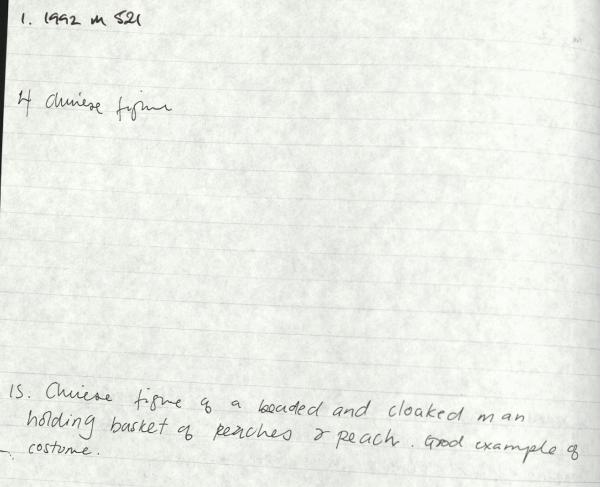 1. 1992 M 521
4 Chinese figure
15. Chinese figure of a beaded and cloaked man
holding basket of peaches & peach. Good example of
costume.